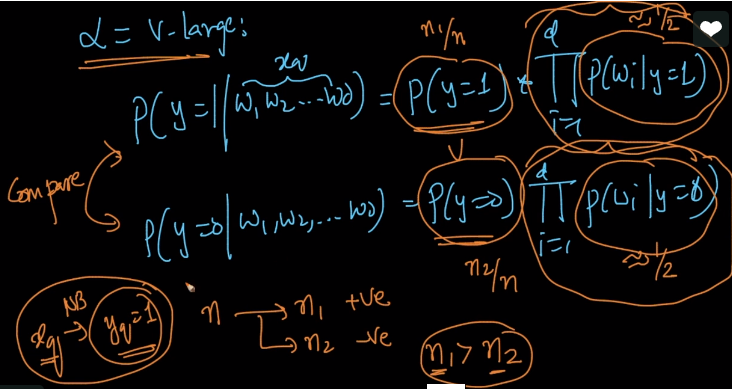 α = V-large:
n1/n
≈ 1/2
xq
P(y=1|w1, w2 ... wd) = P(y=1) * d∏i=1 P(wi|y=1)
Compare
P(y=0|w1, w2, ... wd) = P(y=0) d∏i=1 P(wi|y=0)
n2/n
≈ 1/2
xq NB→ yq=1
n → n1 +ve
→ n2 -ve
n1 > n2